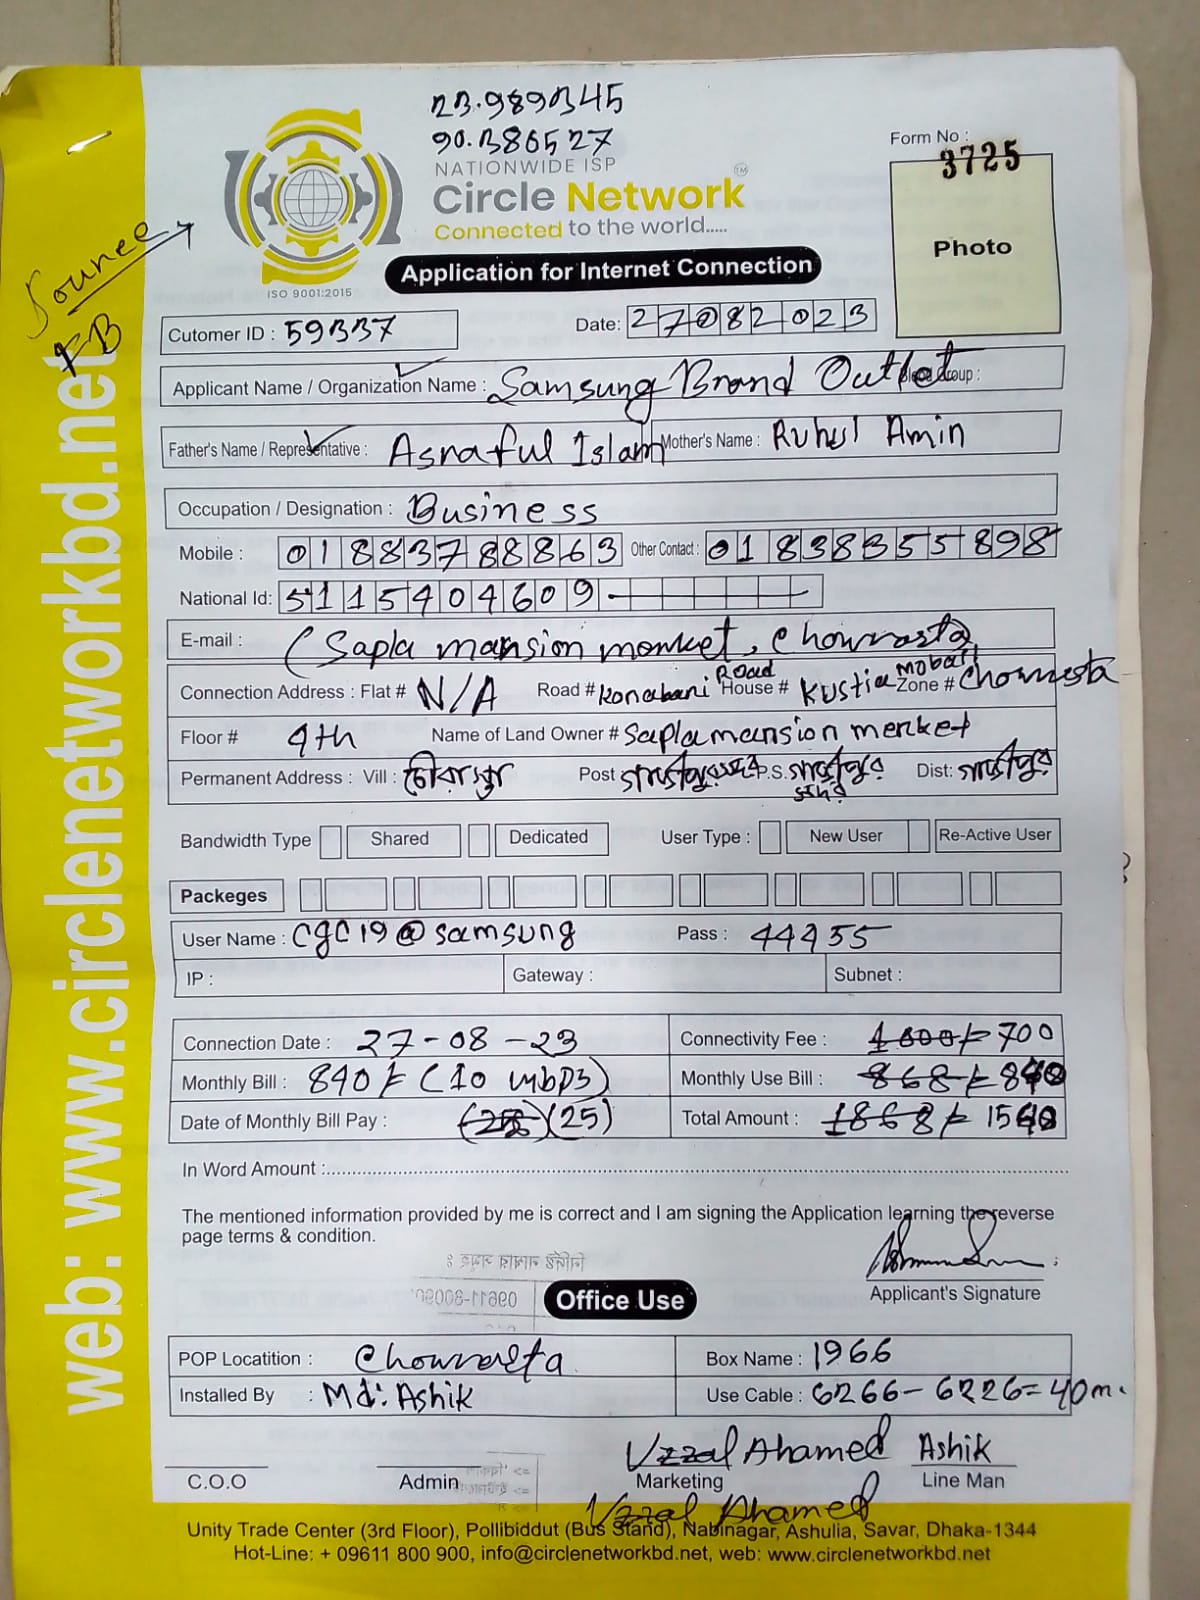 23.989345
90.386527
NATIONWIDE ISP
Circle Network TM
Connected to the world.....
ISO 9001:2015
Form No :
3725
Photo
Application for Internet Connection
FB
web: www.circlenetworkbd.net
Cutomer ID : 59337 Date: 27082023
Applicant Name / Organization Name : Samsung Brand Outlet Group :
Father's Name / Representative : Asraful Islam Mother's Name : Ruhul Amin
Occupation / Designation : Business
Mobile : 01883788863 Other Contact : 01838355898
National Id: 5115404609
E-mail : (Sapla mansion market, Chowrasta
Connection Address : Flat # N/A Road # Konabari Road House # Kustia Mobail Zone # Chowrasta
Floor # 4th Name of Land Owner # Saplamansion merket
Permanent Address : Vill : Post P.S. Dist:
Bandwidth Type Shared Dedicated User Type : New User Re-Active User
Packeges
User Name : cgc19@samsung Pass : 44455
IP : Gateway : Subnet :
Connection Date : 27-08-23 Connectivity Fee : 1000/= 700
Monthly Bill : 840/= (10 mbps) Monthly Use Bill : 868/= 840
Date of Monthly Bill Pay : (25) Total Amount : 1868/= 1540
In Word Amount :
The mentioned information provided by me is correct and I am signing the Application learning the reverse
page terms & condition.
Applicant's Signature
Office Use
POP Locatition : Chowrasta Box Name : 1966
Installed By : Md: Ashik Use Cable : 6266-6226=40m.
Uzzal Ahamed Ashik
C.O.O Admin Marketing Line Man
Uzzal Ahamed
Unity Trade Center (3rd Floor), Pollibiddut (Bus Stand), Nabinagar, Ashulia, Savar, Dhaka-1344
Hot-Line: + 09611 800 900, info@circlenetworkbd.net, web: www.circlenetworkbd.net